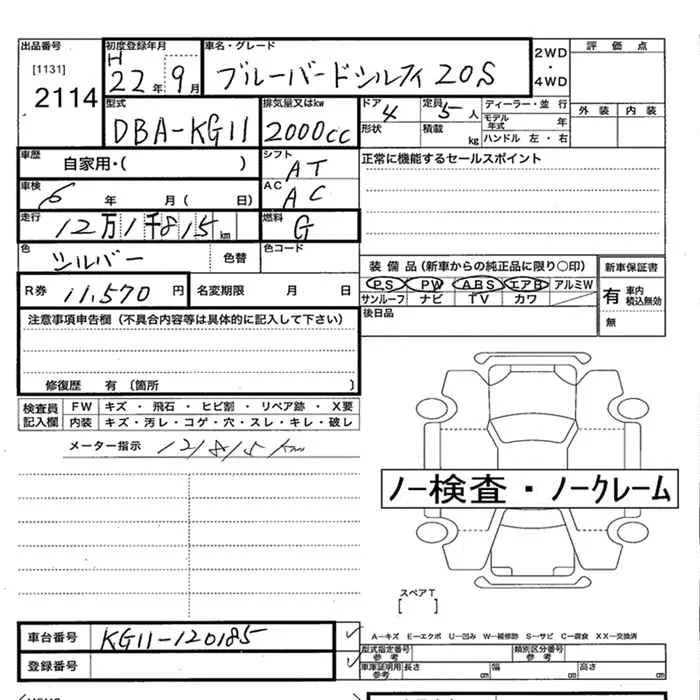 出品番号 初度登録年月 車名・グレード 2WD ・ 4WD 評価点
[1131] H
2114 22年 9月 ブルーバードシルフィ 20S
型式 排気量又はkw ドア 定員 ディーラー・並行 外装 内装
DBA-KG11 2000cc 4 5人 モデル年式 年
形状 積載 kg ハンドル 左・右
車歴 自家用・( ) シフト AT 正常に機能するセールスポイント
車検 6 年 月 ( 日) AC AC
走行 12万1千815km 燃料 G
色 シルバー 色替 色コード
装備品(新車からの純正品に限り〇印) 新車保証書
R券 11,570円 名変期限 月 日 PS PW ABS エアB アルミW 有 車内積込無効
サンルーフ ナビ TV カワ
注意事項申告欄(不具合内容等は具体的に記入して下さい) 後日品 無
修復歴 有 〔箇所 〕
検査員記入欄 FW キズ・飛石・ヒビ割・リペア跡・X要
内装 キズ・汚レ・コゲ・穴・スレ・キレ・破レ
メーター指示 121815km
ノー検査・ノークレーム
スペアT
[ ]
車台番号 KG11-120185 ✓ A-キズ E-エクボ U-凹み W-補修跡 S-サビ C-腐食 XX-交換済
型式指定番号 参考 類別区分番号 参考
登録番号 ✓ 車庫証明用 参考 長さ cm 幅 cm 高さ cm